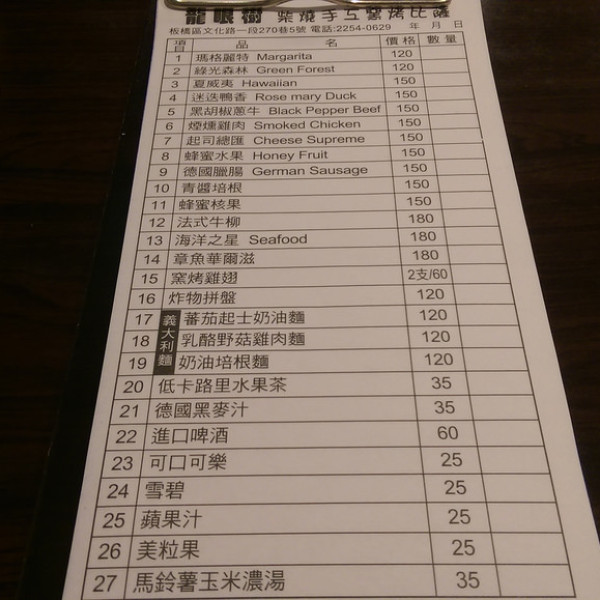 龍眼樹 柴燒手工窯烤比薩
板橋區文化路一段270巷5號 電話:2254-0629 年 月 日
項目 品 名 價格 數量
1 瑪格麗特 Margarita 120
2 綠光森林 Green Forest 120
3 夏威夷 Hawaiian 150
4 迷迭鴨香 Rose mary Duck 150
5 黑胡椒蔥牛 Black Pepper Beef 150
6 煙燻雞肉 Smoked Chicken 150
7 起司總匯 Cheese Supreme 150
8 蜂蜜水果 Honey Fruit 150
9 德國臘腸 German Sausage 150
10 青醬培根 150
11 蜂蜜核果 150
12 法式牛柳 180
13 海洋之星 Seafood 180
14 章魚華爾滋 180
15 窯烤雞翅 2支/60
16 炸物拼盤 120
義大利麵
17 蕃茄起士奶油麵 120
18 乳酪野菇雞肉麵 120
19 奶油培根麵 120
20 低卡路里水果茶 35
21 德國黑麥汁 35
22 進口啤酒 60
23 可口可樂 25
24 雪碧 25
25 蘋果汁 25
26 美粒果 25
27 馬鈴薯玉米濃湯 35